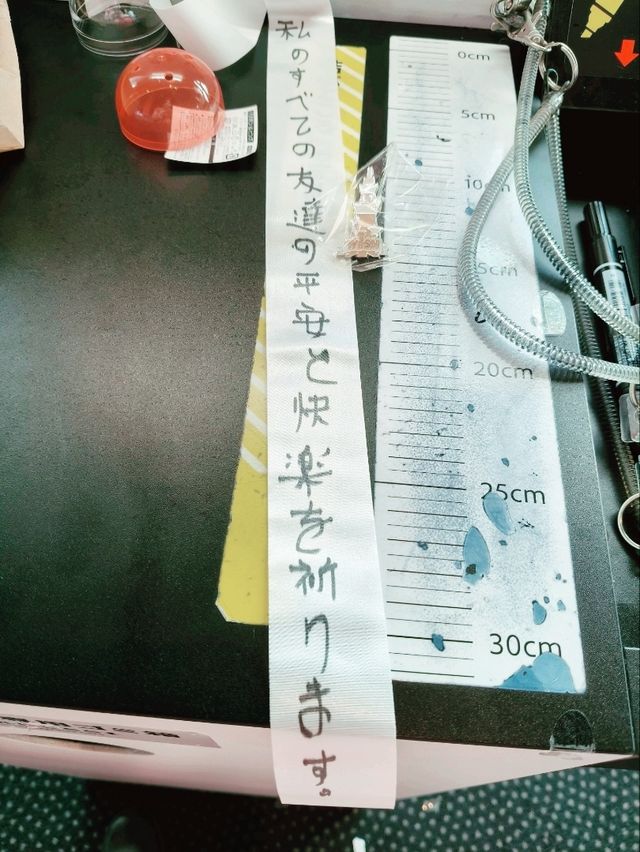 私のすべての友達の平安と快楽を祈ります。
0cm
5cm
10
5cm
20cm
25cm
30cm